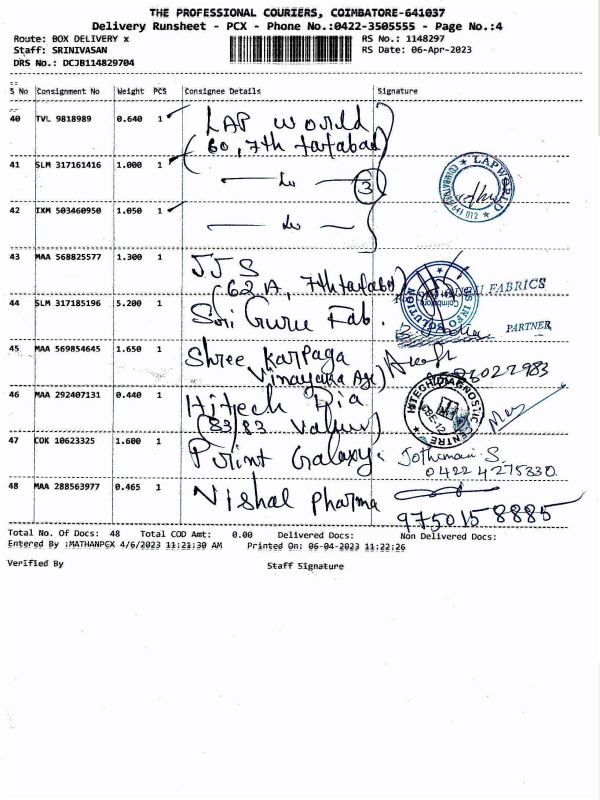 THE PROFESSIONAL COURIERS, COIMBATORE-641037
Delivery Runsheet - PCX - Phone No.:0422-3505555 - Page No.:4
Route: BOX DELIVERY x RS No.: 1148297
Staff: SRINIVASAN RS Date: 06-Apr-2023
DRS No.: DCJB114829704
S No Consignment No Weight PCS Consignee Details Signature
40 TVL 9818989 0.640 1 LAP World
60, 7th tatabad
41 SLM 317161416 1.000 1 3
LAPWORLD
641 012
42 IXM 503460950 1.050 1
43 MAA 568825577 1.300 1 JJS
(62A, 7th tatabad)
FABRICS
44 SLM 317185196 5.200 1 Sri Guru Fab.
PARTNER
45 MAA 569854645 1.650 1 Shree Karpaga
Vinayaka Age
46 MAA 292407131 0.440 1 Hitech Dia
HITECH DIAGNOSTIC CENTRE
47 COK 10623325 1.600 1 Print Galaxy. Jothimani S.
0422 4275330
48 MAA 288563977 0.465 1 Nishal Pharma
9750158885
Total No. Of Docs: 48 Total COD Amt: 0.00 Delivered Docs: Non Delivered Docs:
Entered By :MATHANPCX 4/6/2023 11:21:30 AM Printed On: 06-04-2023 11:22:26
Verified By Staff Signature